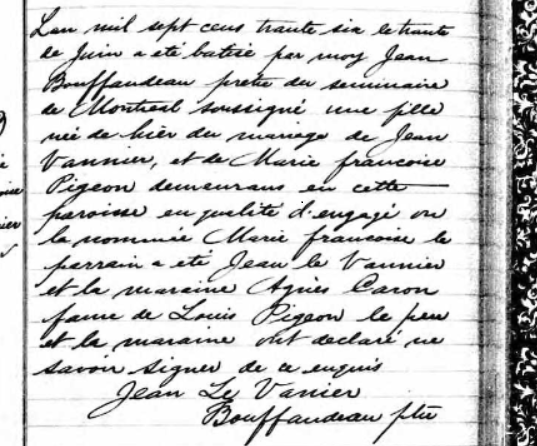 Lan mil sept cens trante six le trante
de Juin a eté batisé par moy Jean
Bouffandeau pretre du seminaire
de Montreal soussigné une fille
née de hier du mariage de Jean
Vannier, et de Marie francoise
Pigeon demeurans en cette
paroisse en qualite d'engagé on
la nommée Marie francoise le
parrain a eté Jean le Vannier
et la maraine Agnès Caron
fame de Louis Pigeon le peu
et la maraine ont declaré ne
savoir signer de ce enquis
Jean Le Vanier
Bouffandeau ptre